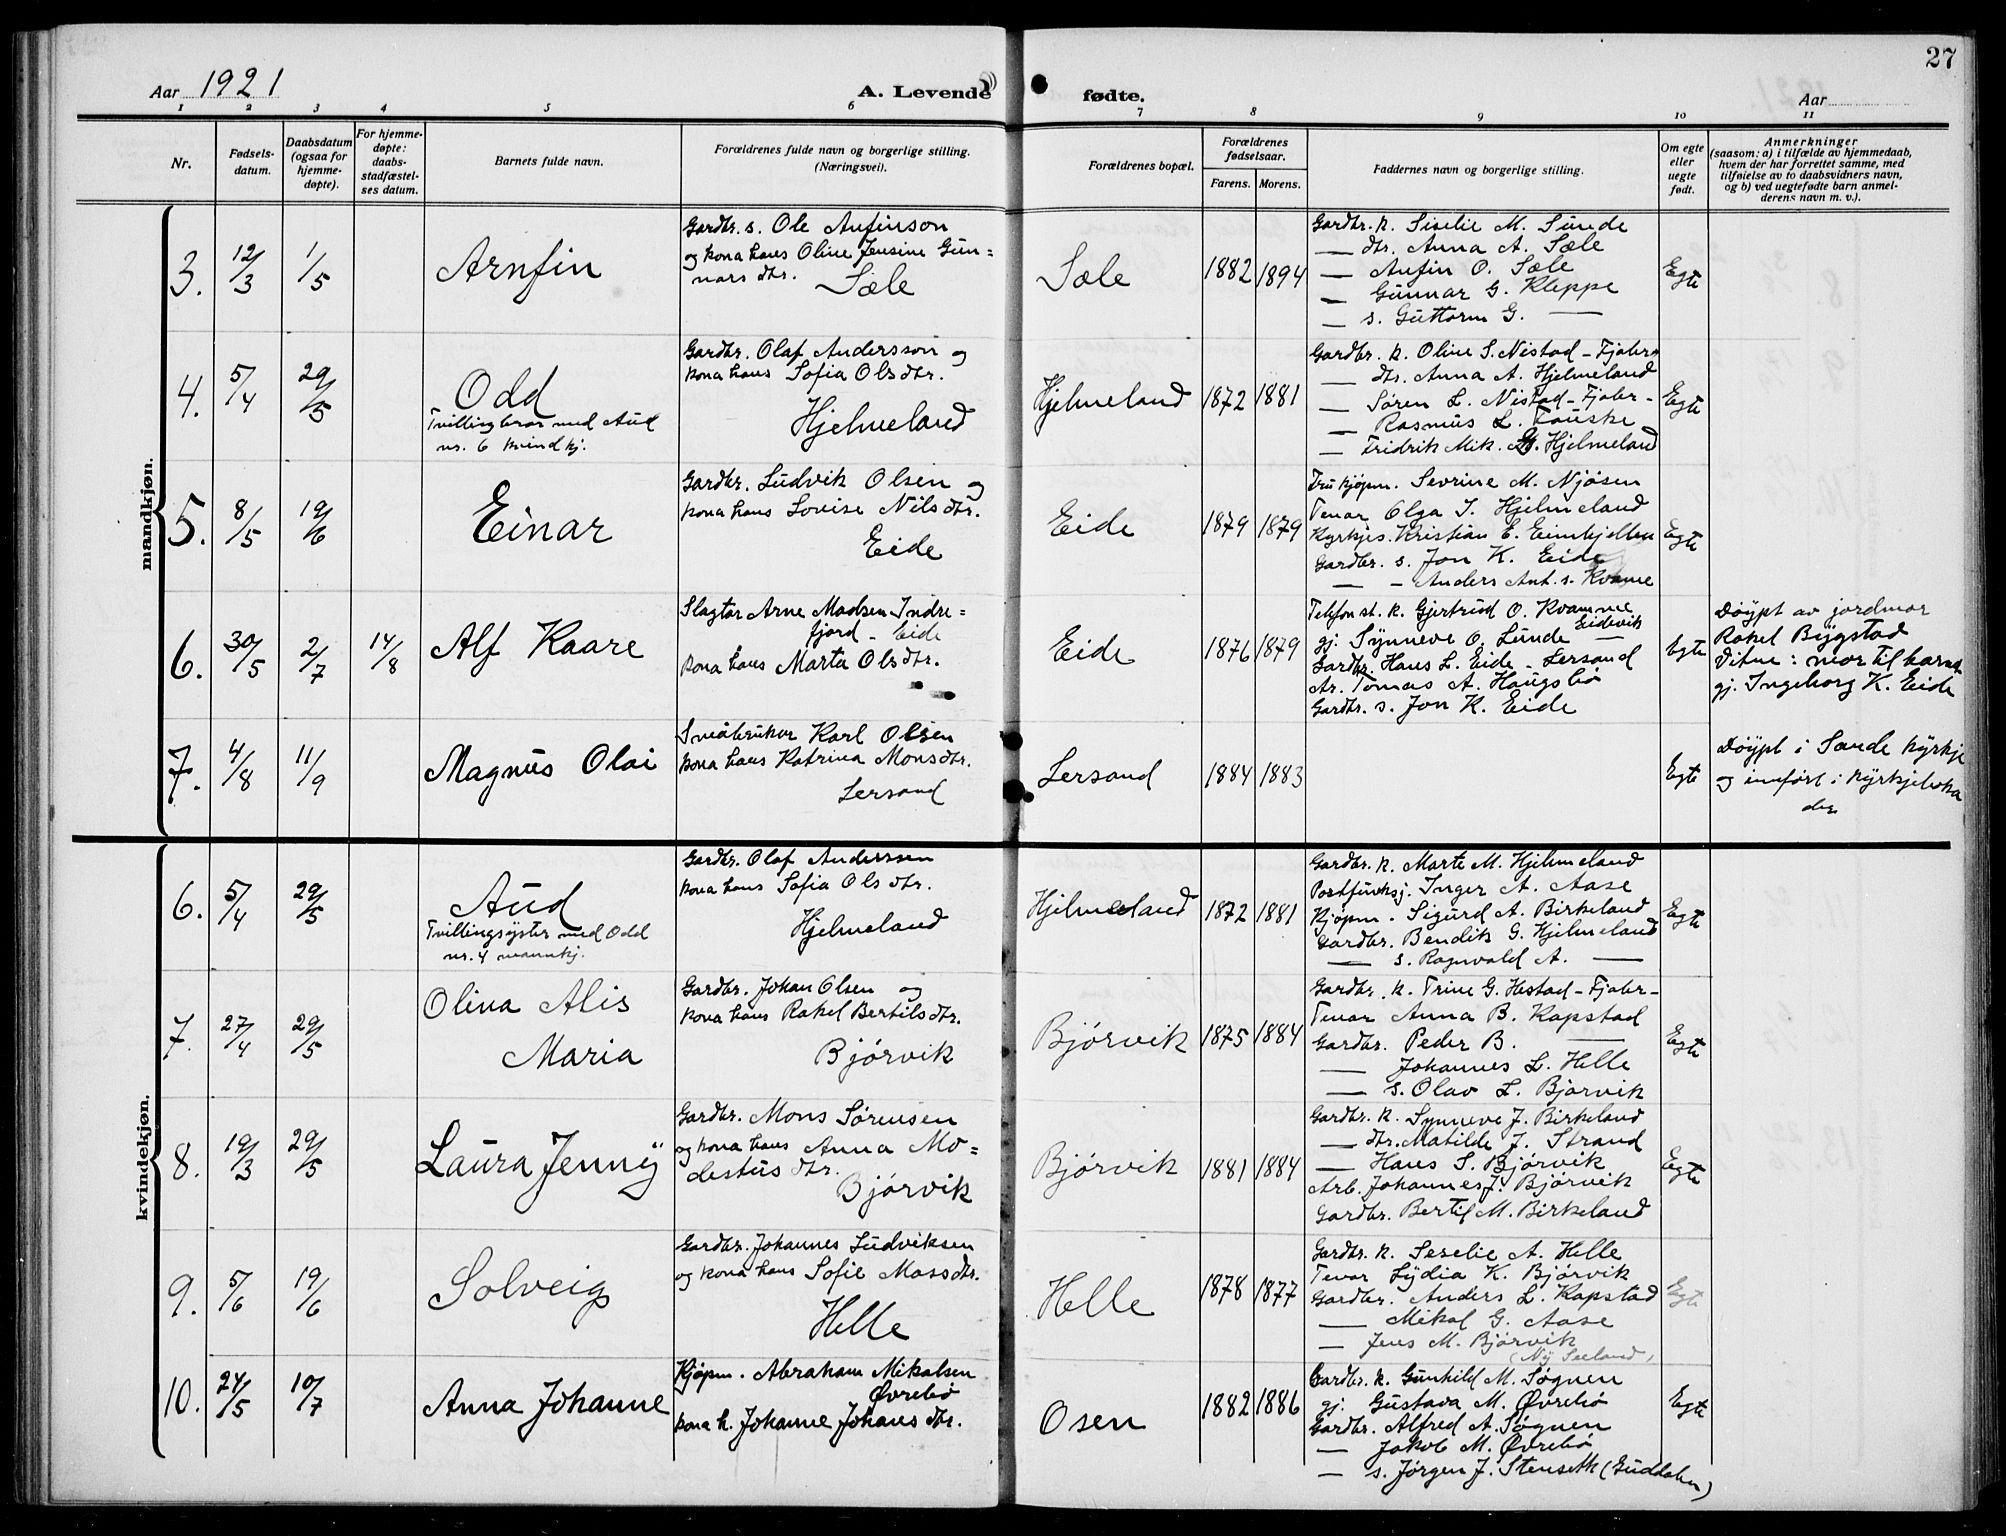 27
Aar 1921
A. Levende fødte.
Aar
1 2 3 4 5 6 7 8 9 10 11
Nr.
Fødsels-
datum.
Daabsdatum
(ogsaa for
hjemme-
døpte).
For hjemme-
døpte:
daabs-
stadfæstel-
ses datum.
Barnets fulde navn.
Forældrenes fulde navn og borgerlige stilling.
(Næringsvei).
Forældrenes bopæl.
Forældrenes
fødselsaar.
Farens. Morens.
Faddernes navn og borgerlige stilling.
Om egte
eller
uegte
født.
Anmerkninger
(saasom: a) i tilfælde av hjemmedaab,
hvem der har forrettet samme, med
tilføielse av to daabsvidners navn,
og b) ved uegtefødte barn anmel-
derens navn m. v.).
mandkjøn.
3.
12/3
1/5
Arnfin
Gardbr. s. Ole Anfinson
og kona hans Oline Jensine Gun=
nars dtr.
Sæle
Sæle
1882 1894
Gardbr. k. Siselie M. Sunde
— dtr. Anna A. Sæle
— Anfin O. Sæle
— Gunnar G. Kleppe
— s. Guttorm G. —
Egte
4.
5/4
29/5
Odd
Tvillingbror med Aud
nr. 6 kvindkj.
Gardbr. Olaf Andersson og
kona hans Sofia Olsdtr.
Hjelmeland
Hjelmeland
1872 1881
Gardbr. k. Oline S. Nistad - Fjaler
— dtr. Anna A. Hjelmeland
— Søren L. Nistad - Fjaler -
— Rasmus L. Fauske
— Fridrik Mik. G. Hjelmeland
Egte
5.
8/5
19/6
Einar
Gardbr. Ludvik Olsen og
kona hans Lovise Nilsdtr.
Eide
Eide
1879 1879
Fru kjøpm. Sevrine M. Njøsen
Tenar Olga I. Hjelmeland
Kyrkjes. Kristian E. Eimhjellen
Gardbr. s. Jon K. Eide
— - Anders Ant. s. Kvame
Egte
6.
30/5
2/7
14/8
Alf Kaare
Slagtar Arne Madsen Indre=
fjord - Eide
kona hans Marta Olsdtr.
Eide
1876 1879
Telefonst. k. Gjertrud O. Kvamme
Eidevik
gj. Synneve O. Lunde —
Gardbr. Hans L. Eide - Lersand
Ar. Tomas A. Haugsbø
Gardbr. s. Jon K. Eide
Egte
Døypt av jordmor
Rakel Bygstad
Vitne: mor til barnet
gj. Ingeborg K. Eide
7.
4/8
11/9
Magnus Olai
Småbrukar Karl Olsen
kona hans Katrina Monsdtr.
Lersand
Lersand
1884 1883
Egte
Døypt i Sande kyrkje
og innført i kyrkjeboka
der
kvindekjøn.
6.
5/4
29/5
Aud
Tvillingsyster med Odd
nr. 4 mannkj.
Gardbr. Olaf Anderssen
kona hans Sofia Olsdtr.
Hjelmeland
Hjelmeland
1872 1881
Gardbr. k. Marte M. Hjelmeland
Postfunksj. Inger A. Aase
Kjøpm. Sigurd A. Birkeland
Gardbr. Bendik G. Hjelmeland
— s. Ragnvald A. —
Egte
7.
27/4
29/5
Olina Alis
Maria
Gardbr. Johan Olsen og
kona hans Rakel Bertilsdtr.
Bjørvik
Bjørvik
1875 1884
Gardbr. k. Trine G. Hestad - Fjaler -
Tenar Anna B. Kapstad
Gardbr. Peder B. —
— Johannes L. Helle
— s. Olav L. Bjørvik
Egte
8.
19/3
29/5
Laura Jenny
Gardbr. Mons Sørensen
og kona hans Anna Mo=
destus dtr.
Bjørvik
Bjørvik
1881 1884
Gardbr. k. Synneve J. Birkeland
— dtr. Matilde J. Strand
— Hans S. Bjørvik
Arb. Johannes J. Bjørvik
Gardbr. Bertil M. Birkeland
Egte
9.
5/6
19/6
Solveig
Gardbr. Johannes Ludviksen
og kona hans Sofie Massdtr.
Helle
Helle
1878 1877
Gardbr. k. Seselie A. Helle
Tenar Lydia K. Bjørvik
Gardbr. Anders L. Kapstad
— Mikal G. Aase
— Jens M. Bjørvik
(Ny Seeland)
Egte
10.
24/5
10/7
Anna Johanne
Kjøpm. Abraham Mikalsen
Øvrebø
kona h. Johanne Johansdtr.
Osen
1882 1886
Gardbr. k. Gunhild M. Søgnen
gj. Gustava M. Øvrebø
Gardbr. Alfred A. Søgnen
— Jakob M. Øvrebø
— s. Jørgen J. Stenseth (Guddalen)
Egte